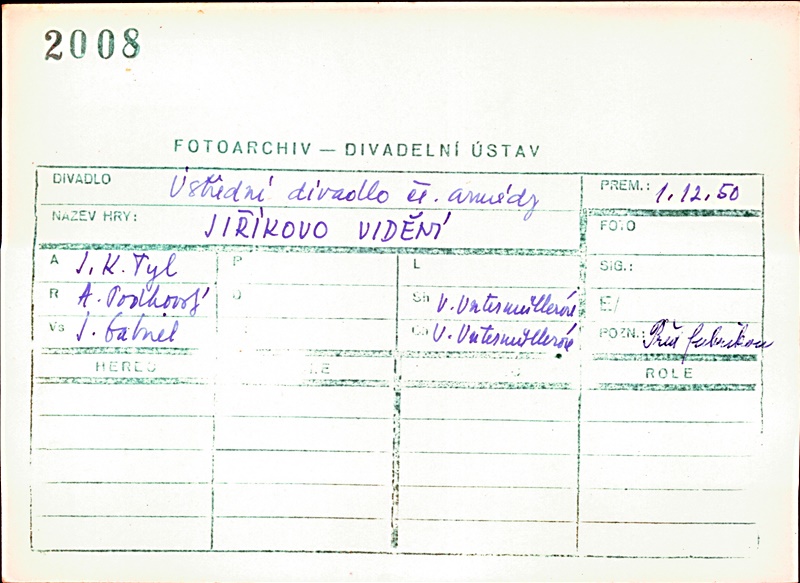 2008
FOTOARCHIV — DIVADELNÍ ÚSTAV
DIVADLO Ústřední divadlo čs. armády PREM.: 1.12.50
NÁZEV HRY: JIŘÍKOVO VIDĚNÍ FOTO
A J. K. Tyl P L SIG.:
R A. Podhorský O Sh V. Untermüllerové E/
Vs J. Gabriel Ch V. Untermüllerové POZN.:
HEREC ROLE